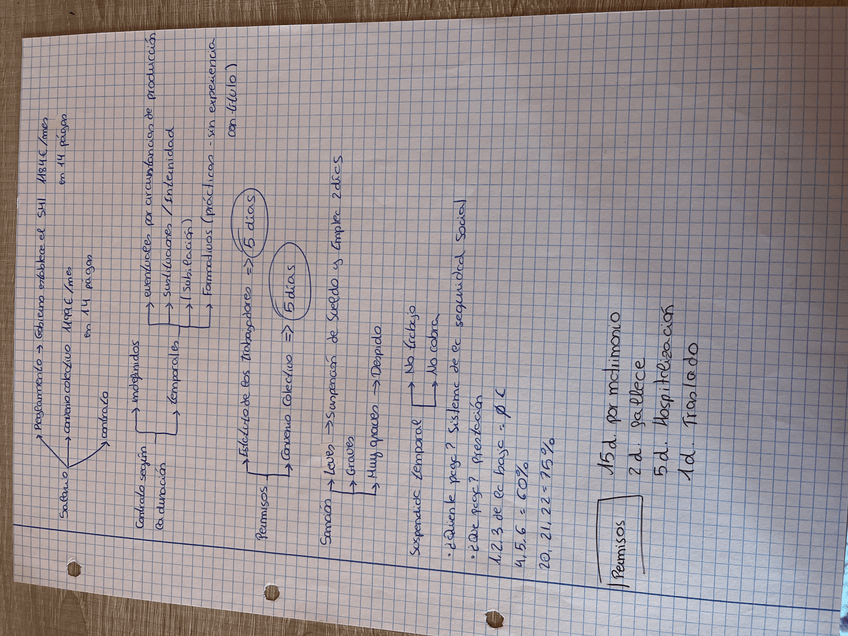 → Reglamento → Gobierno establece el SMI 1184€/mes
en 14 pagas
Salario → convenio colectivo 1199€/mes
en 14 pagas
→ contrato
Contrato según → indefinidos
la duración → temporales → eventuales por circunstancias de producción
→ sustituciones / Interinidad
→ (Jubilación)
→ Formativos (prácticas - sin experiencia
con título)
Permisos → Estatuto de los trabajadores => 5 días
→ Convenio Colectivo => 5 días
Sanción → Leves → Suspensión de sueldo y Empleo 2 días
→ Graves
→ Muy graves → Despido
Suspendido temporal → No trabajo
→ No cobra
· ¿Quien te paga? Sistema de la seguridad social
· ¿Que paga? prestación
1, 2, 3 de la baja = 0 €
4, 5, 6 = 60%
20, 21, 22 = 75%
Permisos
15 d. por matrimonio
2 d. fallece
5 d. Hospitalización
1 d. Traslado